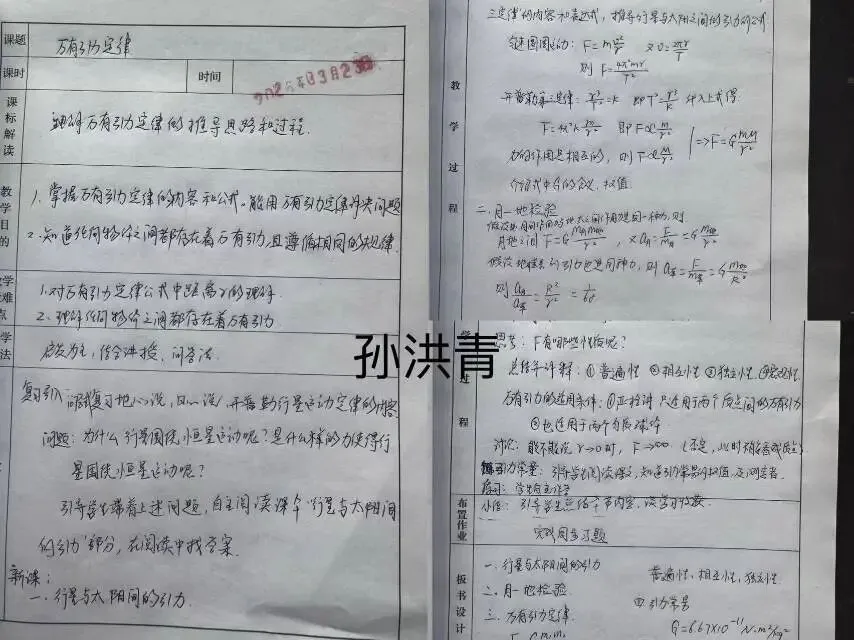 课题
万有引力定律
课时
时间
2022年03月23日
课标解读
理解万有引力定律的推导思路和过程.
教学目的
1. 掌握万有引力定律的内容和公式。能用万有引力定律解决问题
2. 知道任何物体之间都存在着万有引力,且遵循相同的规律.
1. 对万有引力定律公式中距离r的理解
2. 理解任何物体之间都存在着万有引力
启发为主,结合讲授,问答法
复习引入 问题复习地心说,日心说,开普勒行星运动定律的内容
问题:为什么行星围绕恒星运动呢?是什么样的力使得行
星围绕恒星运动呢?
引导学生带着上述问题,自主阅读课本"行星与太阳间
的引力"部分,在阅读中找答案.
新课:
一. 行星与太阳间的引力
孙洪青
教学过程
三定律的内容和表达式,推导行星与太阳之间的引力的公式
匀速圆周运动: F=m v²/r 又 v=2πr/T
则 F=4π²mr/T²
开普勒第三定律: r³/T²=k 即 T²=r³/k 代入上式得
F=4π²k m/r² 即 F∝m/r²
力的作用是相互的, 则 F∝M/r²
=>F=G mM/r²
介绍式中G的含义、取值
二. 月—地检验
月地之间 F=G m月m地/r², 又 a月=F/m月=G m地/r²
假设地球与苹果引力也是同种力, 则 a苹=F/m苹=G m地/R²
则 a月/a苹=R²/r²=1/60²
思考: F有哪些性质呢?
总结并讲解: ①普遍性 ②相互性 ③独立性 ④宏观性
万有引力的适用条件: ①严格讲 只适用于两个质点间的万有引力
②也适用于两个匀质球体
讨论: 能不能说 r→0时, F→∞ (否定, 此时不能看成质点)
引力常量: 引导学生阅读课文, 知道引力常量的取值, 及测定者.
小结: 引导学生总结本节内容, 谈学习收获
布置作业
实践同步习题
板书设计
一. 行星与太阳间的引力
二. 月—地检验
三. 万有引力定律
普遍性、相互性、独立性
四 引力常量
G=6.67×10⁻¹¹ N·m²/kg²